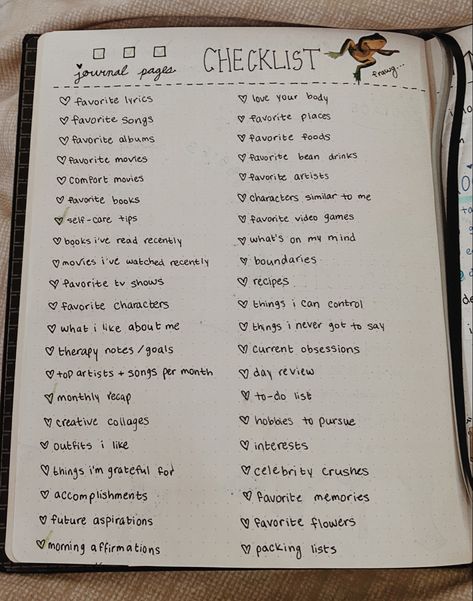 journal pages CHECKLIST
frawg...
♡ favorite lyrics
♡ favorite songs
♡ favorite albums
♡ favorite movies
♡ comfort movies
♡ favorite books
♡ self-care tips
♡ books i've read recently
♡ movies i've watched recently
♡ favorite tv shows
♡ favorite characters
♡ what i like about me
♡ therapy notes/goals
♡ top artists + songs per month
♡ monthly recap
♡ creative collages
♡ outfits i like
♡ things i'm grateful for
♡ accomplishments
♡ future aspirations
♡ morning affirmations
♡ love your body
♡ favorite places
♡ favorite foods
♡ favorite bean drinks
♡ favorite artists
♡ characters similar to me
♡ favorite video games
♡ what's on my mind
♡ boundaries
♡ recipes
♡ things i can control
♡ things i never got to say
♡ current obsessions
♡ day review
♡ to-do list
♡ hobbies to pursue
♡ interests
♡ celebrity crushes
♡ favorite memories
♡ favorite flowers
♡ packing lists